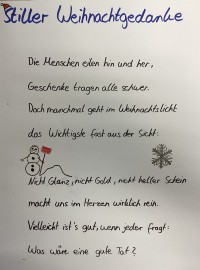 Stiller Weihnachtsgedanke
Die Menschen eilen hin und her,
Geschenke tragen alle schwer.
Doch manchmal geht im Weihnachtslicht
das Wichtigste fast aus der Sicht:
Nicht Glanz, nicht Gold, nicht heller Schein
macht uns im Herzen wirklich rein.
Vielleicht ist's gut, wenn jeder fragt:
Was wäre eine gute Tat?